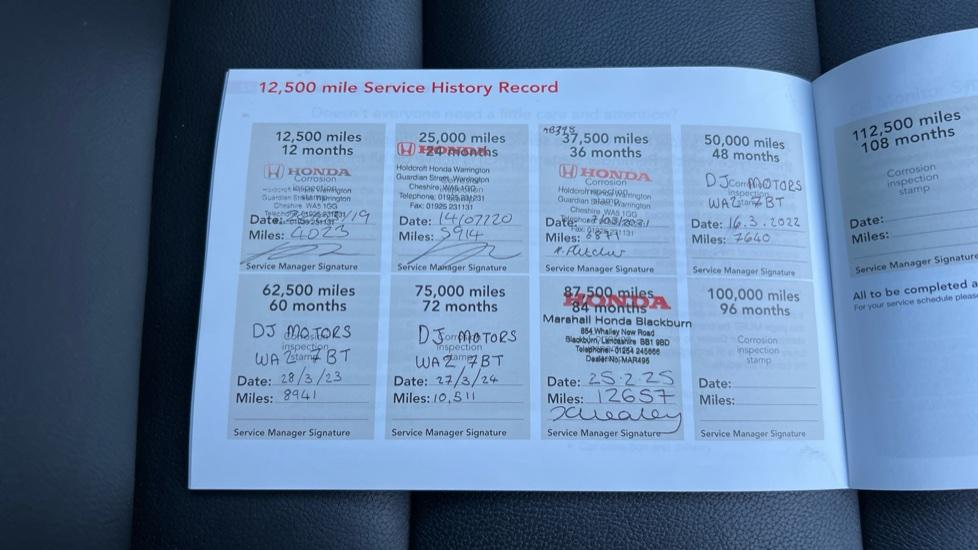 12,500 mile Service History Record
12,500 miles
12 months
HONDA
Corrosion
inspection
Cheshire WA5 1GG
Date: /19
Miles: 4023
Service Manager Signature
25,000 miles
24 months
HONDA
Holdcroft Honda Warrington
Guardian Street, Warrington
Cheshire, WA5 1GG
Telephone: 01925 231231
Fax: 01925 231131
Date: 14/07/20
Miles: 5914
Service Manager Signature
37,500 miles
36 months
HONDA
Corrosion
Cheshire WA5 1GG
Date: /03/2021
Miles:
Service Manager Signature
50,000 miles
48 months
DJ MOTORS
WA2 7BT
Date: 16.3.2022
Miles: 7640
Service Manager Signature
62,500 miles
60 months
DJ MOTORS
inspection
WA2 7BT
Date: 28/3/23
Miles: 8941
Service Manager Signature
75,000 miles
72 months
DJ MOTORS
inspection
WA2 7BT
Date: 27/3/24
Miles: 10,511
Service Manager Signature
87,500 miles
84 months
HONDA
Marshall Honda Blackburn
854 Whalley New Road
Blackburn, Lancashire BB1 9BD
Telephone: 01254 245666
Dealer No. MAR495
Date: 25.2.25
Miles: 12657
Service Manager Signature
100,000 miles
96 months
Corrosion
inspection
stamp
Date:
Miles:
Service Manager Signature
112,500 miles
108 months
Corrosion
inspection
stamp
Date:
Miles:
Service Manager Signature
All to be completed a
For your service schedule please